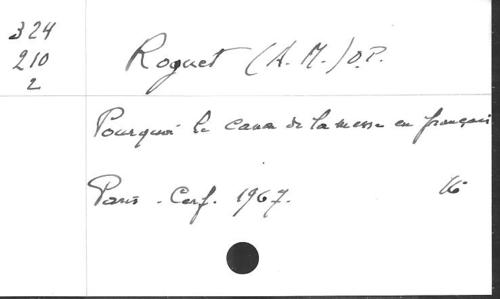 324
210
2
Roguet (A. M.) O.P.
Pourquoi le canon de la messe en français
Paris. Cerf. 1967. 16°